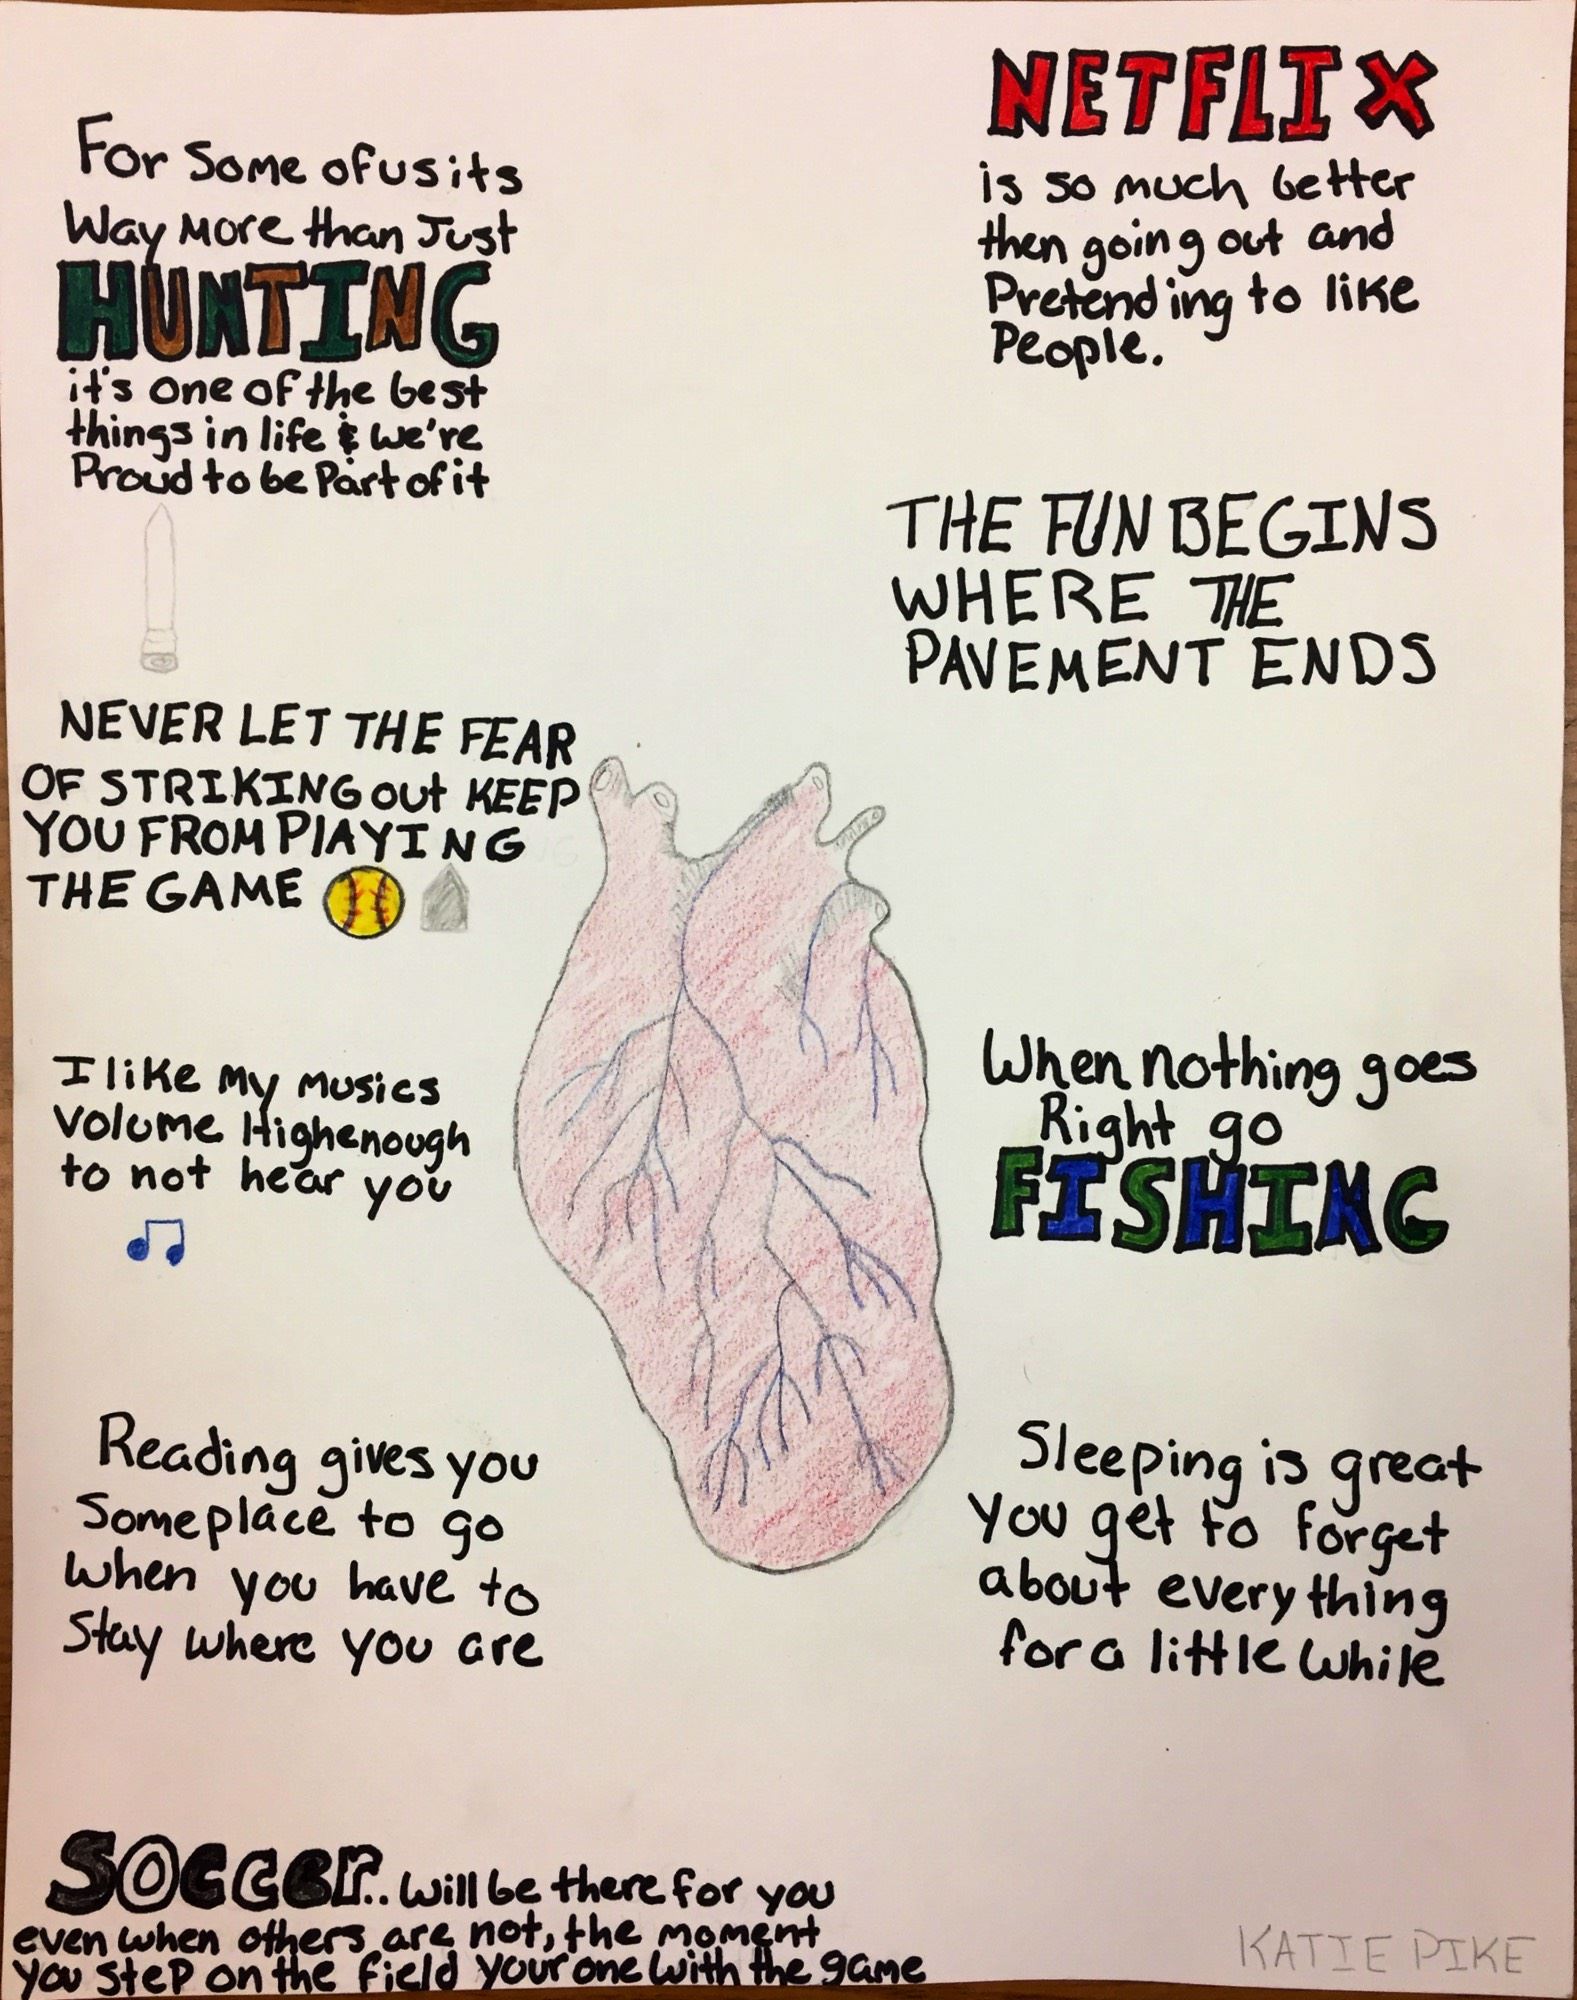 For Some of us its
Way More than Just
HUNTING
it's one of the best
things in life & we're
Proud to be Part of it
NETFLIX
is so much better
then going out and
Pretending to like
People.
THE FUN BEGINS
WHERE THE
PAVEMENT ENDS
NEVER LET THE FEAR
OF STRIKING out KEEP
YOU FROM PlAYING
THE GAME
I like my musics
Volume High enough
to not hear you
When nothing goes
Right go
FISHING
Reading gives you
Someplace to go
when you have to
Stay where you are
Sleeping is great
You get to forget
about everything
for a little while
Soccer.. will be there for you
even when others are not, the moment
you step on the field your one with the game
KATIE PIKE